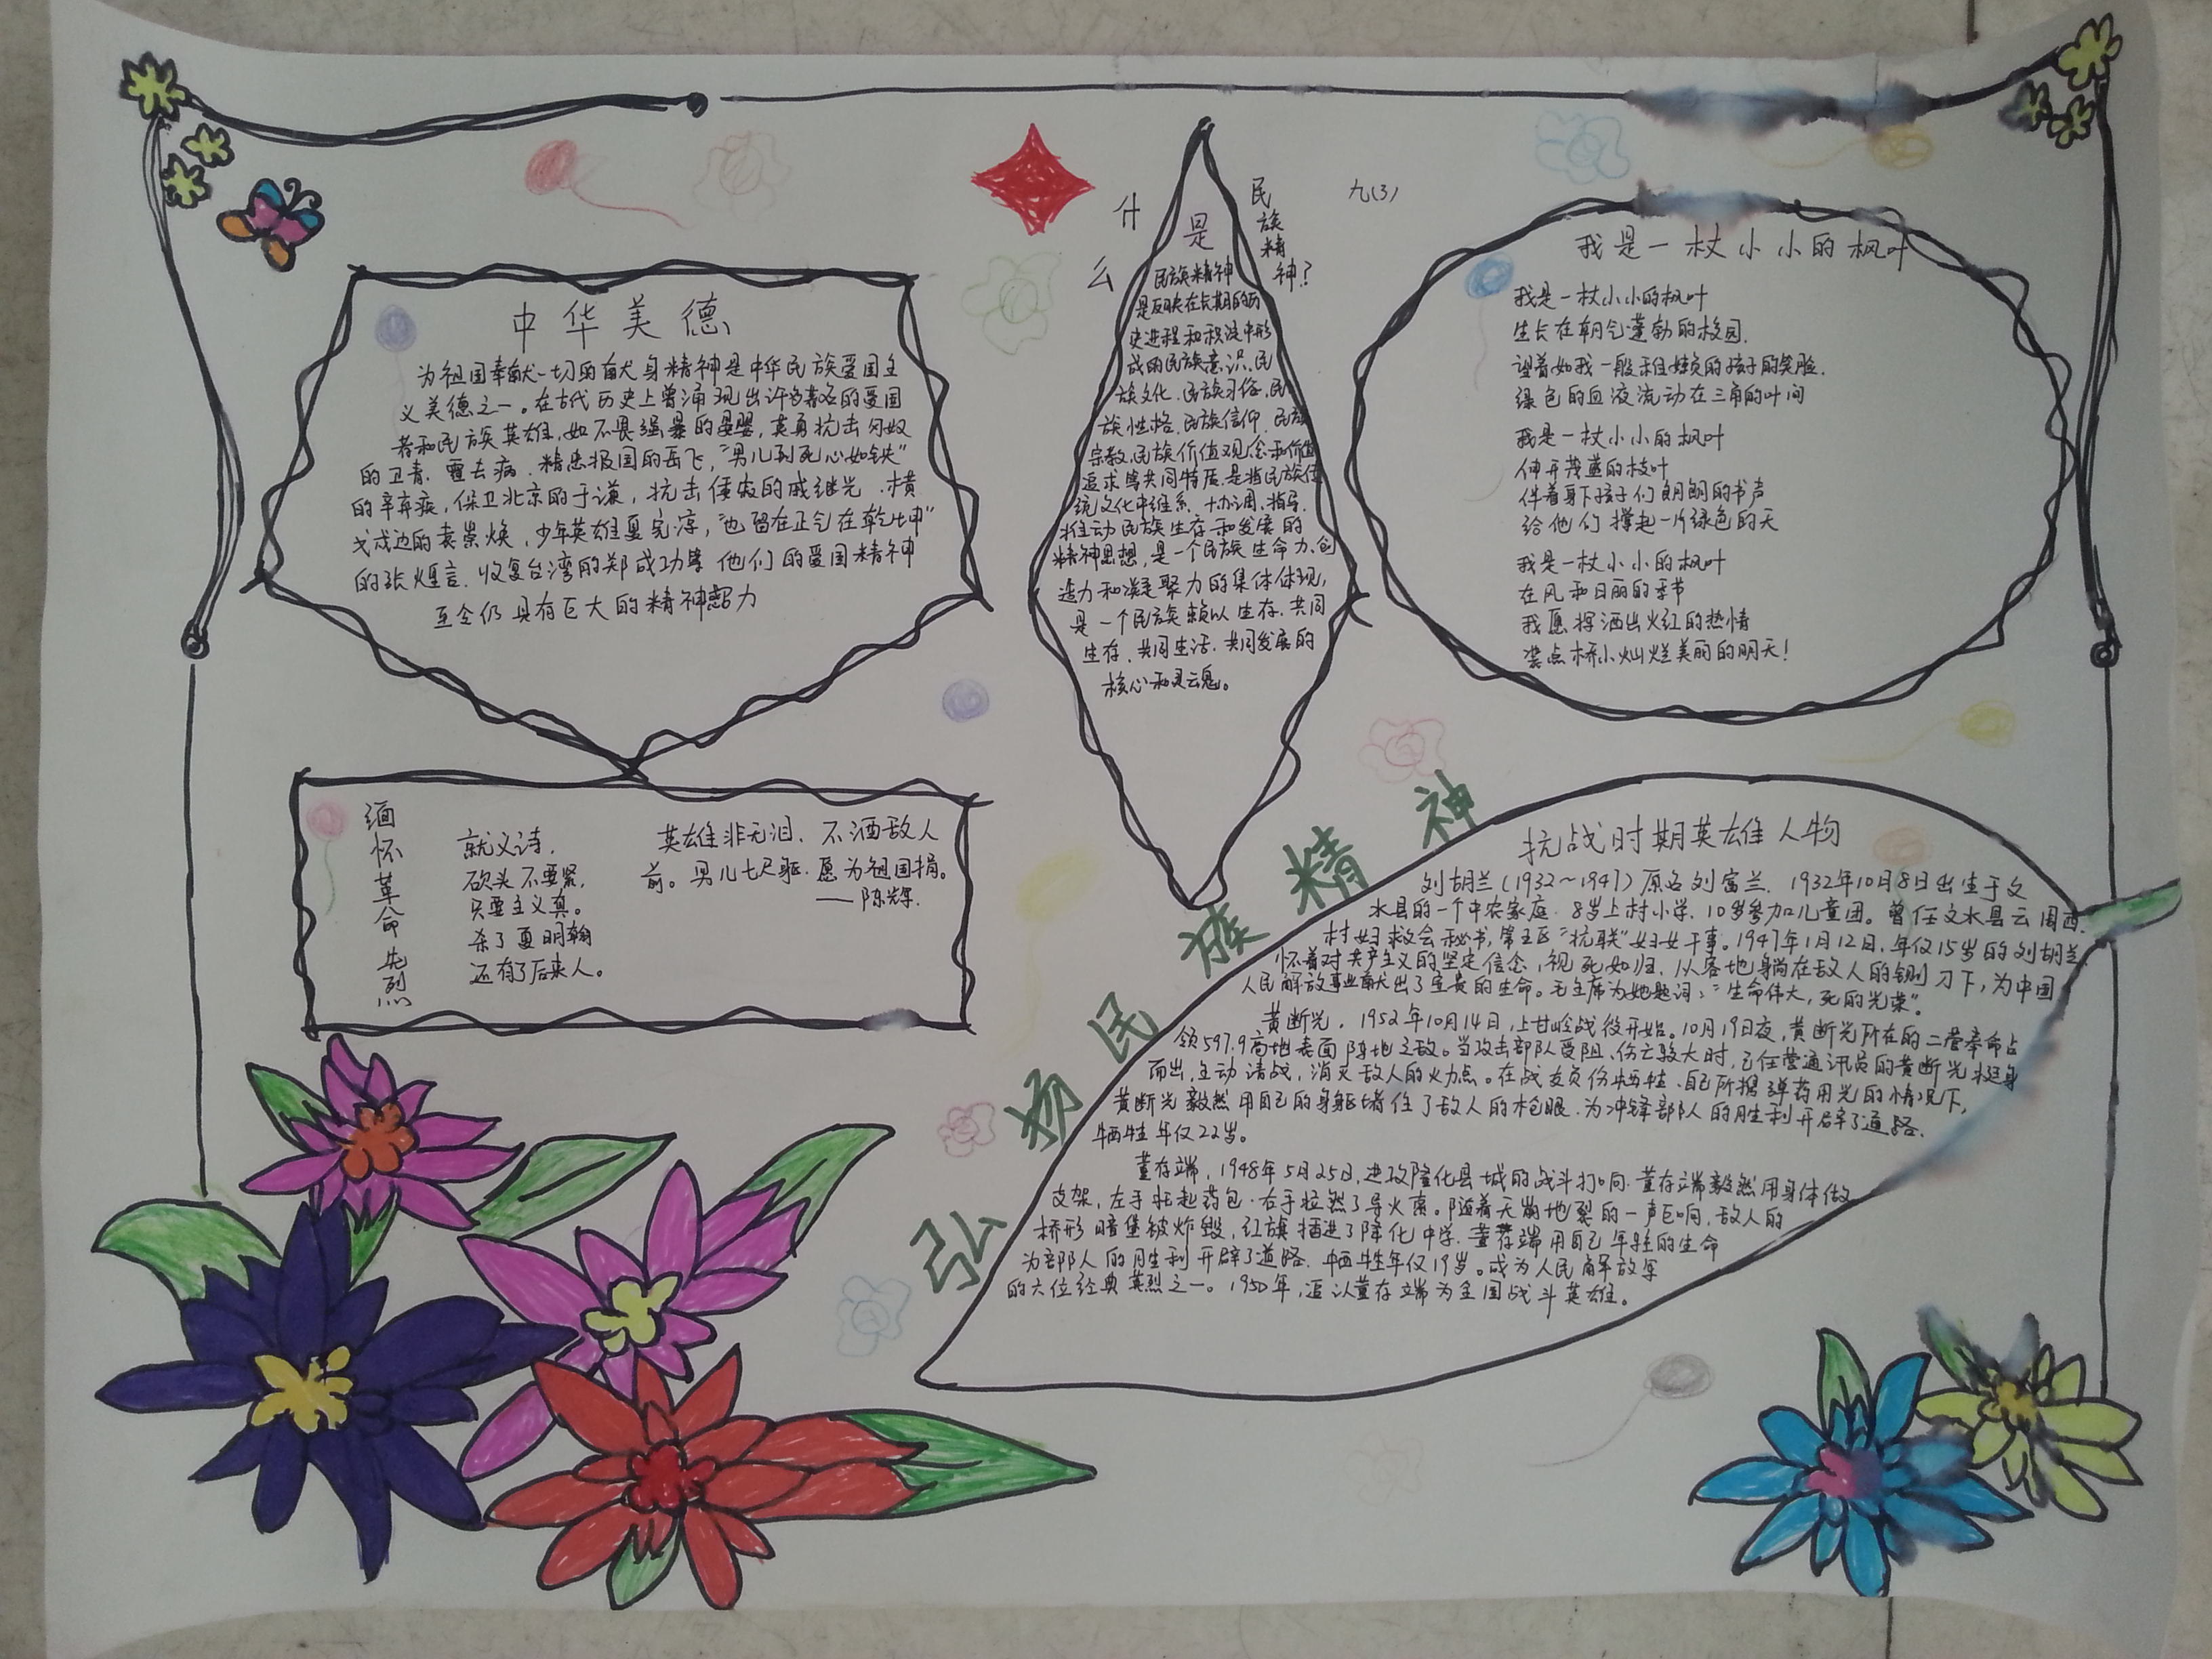 中华美德
为祖国奉献一切的献身精神是中华民族爱国主
义美德之一。在古代历史上曾涌现出许多著名的爱国
者和民族英雄,如不畏强暴的晏婴,英勇抗击匈奴
的卫青、霍去病、精忠报国的岳飞,“男儿到死心如铁”
的辛弃疾,保卫北京的于谦,抗击倭寇的戚继光、横
戈戍边的袁崇焕,少年英雄夏完淳,“也留在正气在乾坤”
的张煌言、收复台湾的郑成功等他们的爱国精神
至今仍具有巨大的精神魅力
什么是民族精神?
民族精神
是反映在长期的历
史进程和积淀中形
成的民族意识、民
族文化、民族习俗、民
族性格、民族信仰、民族
宗教、民族价值观念和价值
追求等共同特质,是指民族传
统文化中维系、协调、指导、
推动民族生存和发展的
精神思想,是一个民族生命力、创
造力和凝聚力的集体体现,
是一个民族赖以生存、共同
生存、共同生活、共同发展的
核心和灵魂。
九(3)
我是一杖小小的枫叶
我是一杖小小的枫叶
生长在朝气蓬勃的校园.
望着如我一般稚嫩的孩子的笑脸.
绿色的血液流动在三角的叶间
我是一杖小小的枫叶
伸开茂盛的枝叶
伴着身下孩子们朗朗的书声
给他们撑起一片绿色的天
我是一杖小小的枫叶
在风和日丽的季节
我愿挥洒出火红的热情
装点桥小灿烂美丽的明天!
缅怀革命先烈
就义诗.
砍头不要紧,
只要主义真。
杀了夏明翰
还有了后来人。
英雄非无泪、不洒敌人
前。男儿七尺躯.愿为祖国捐。
——陈辉.
弘扬民族精神
抗战时期英雄人物
刘胡兰(1932~1947)原名刘富兰.1932年10月8日出生于文
水县的一个中农家庭.8岁上村小学、10岁参加儿童团。曾任文水县云周西
村妇救会秘书,第五区“抗联”妇女干事。1947年1月12日,年仅15岁的刘胡兰
怀着对共产主义的坚定信念,视死如归.从容地躺在敌人的铡刀下,为中国
人民解放事业献出了宝贵的生命。毛主席为她题词:“生命伟大,死的光荣”。
黄断光,1952年10月14日,上甘岭战役开始。10月19日夜,黄断光所在的二营奉命占
领597.9高地表面阵地之敌。当攻击部队受阻、伤亡较大时,已任营通讯员的黄断光挺身
而出,主动请战,消灭敌人的火力点。在战友负伤牺牲、自己所携弹药用光的情况下,
黄断光毅然用自己的身躯堵住了敌人的枪眼.为冲锋部队的胜利开辟了道路.
牺牲年仅22岁。
董存端,1948年5月25日,进攻隆化县城的战斗打响.董存端毅然用身体做
支架,左手托起药包.右手拉然了导火索。随着天崩地裂的一声巨响,敌人的
桥形暗堡被炸毁,红旗插进了隆化中学.董存端用自己年轻的生命
为部队的胜利开辟了道路.牺牲年仅19岁。成为人民解放军
的六位经典英烈之一。1950年,追认董存端为全国战斗英雄。